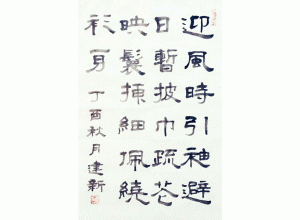 迎風時引袖避
日暫披巾疏花
映鬢插細佩繞
衫身 丁酉秋月建新